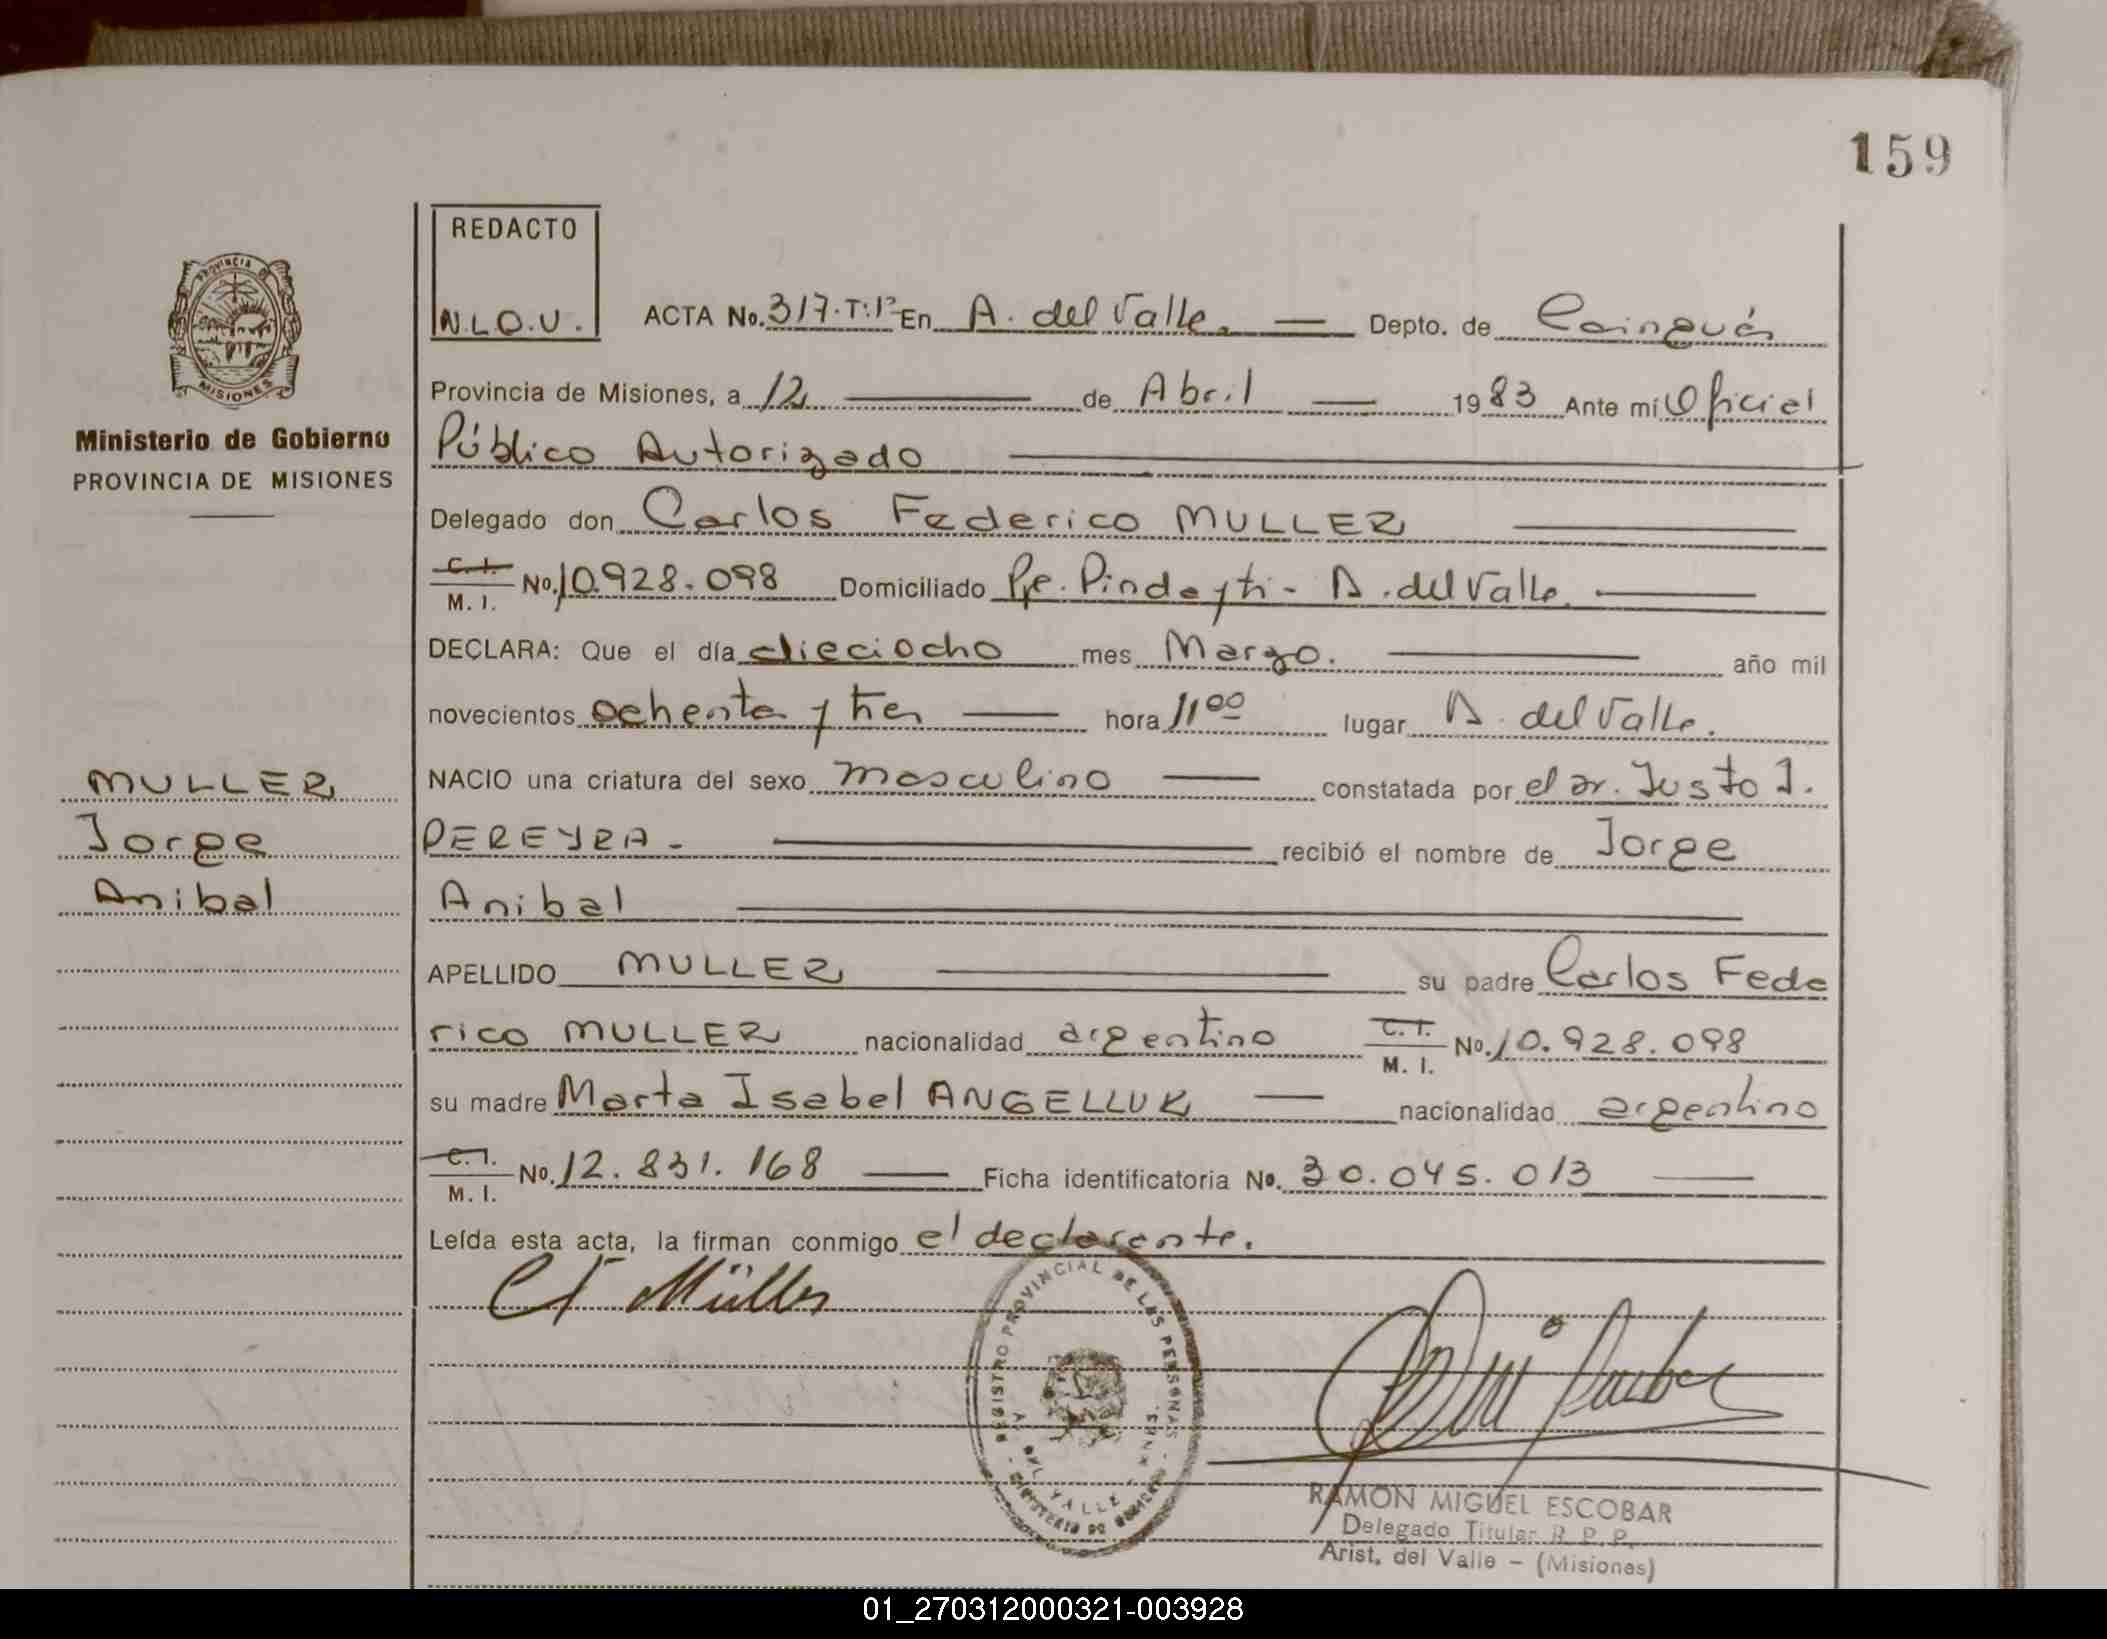 159
REDACTO
N.L.O.U.
PROVINCIA DE
MISIONES
Ministerio de Gobierno
PROVINCIA DE MISIONES
ACTA No. 317.T:1º En A. del Valle. Depto. de Cainguás
Provincia de Misiones, a 12 de Abril 1983 Ante mí Oficial
Público Autorizado
Delegado don Carlos Federico MULLER
C. I. M. I. No. 10.928.098 Domiciliado Pje. Pindayti - A. del Valle.
DECLARA: Que el día dieciocho mes Marzo. año mil
novecientos ochenta y tres hora 11 00 lugar A. del Valle.
NACIO una criatura del sexo masculino constatada por el Dr. Justo I.
PEREYRA. recibió el nombre de Jorge
Anibal
APELLIDO MULLER su padre Carlos Fede
rico MULLER nacionalidad argentino C. I. M. I. No. 10.928.098
su madre Marta Isabel ANGELLUK nacionalidad argentino
C. I. M. I. No. 12.831.168 Ficha identificatoria No. 30.045.013
Leída esta acta, la firman conmigo el declarante.
MULLER
Jorge
Anibal
C F Müller
REGISTRO PROVINCIAL DE LAS PERSONAS
A. DEL VALLE
MINISTERIO DE GOBIERNO
RAMON MIGUEL ESCOBAR
Delegado Titular R. P. P.
Arist. del Valle - (Misiones)
01_270312000321-003928